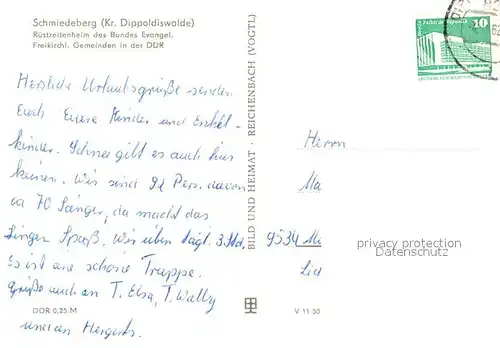 Schmiedeberg (Kr. Dippoldiswalde)
Rüstzeitenheim des Bundes Evangel.
Freikirchl. Gemeinden in der DDR
Herzliche Urlaubsgrüße senden
Euch Eure Kinder und Enkel-
kinder. Schnee gibt es auch hier
keinen. Wir sind 92 Pers. davon
ca 70 Sänger, da macht das
Singen Spaß. Wir üben tägl. 3 Std.
Es ist eine schöne Truppe.
Grüße auch an T. Elsa, T. Wally
und an Hergerts.
DDR 0,25 M
BILD UND HEIMAT · REICHENBACH (VOGTL)
V 11 50
10
Herrn
Ma
9534 Mi
Lid
privacy protection
Datenschutz